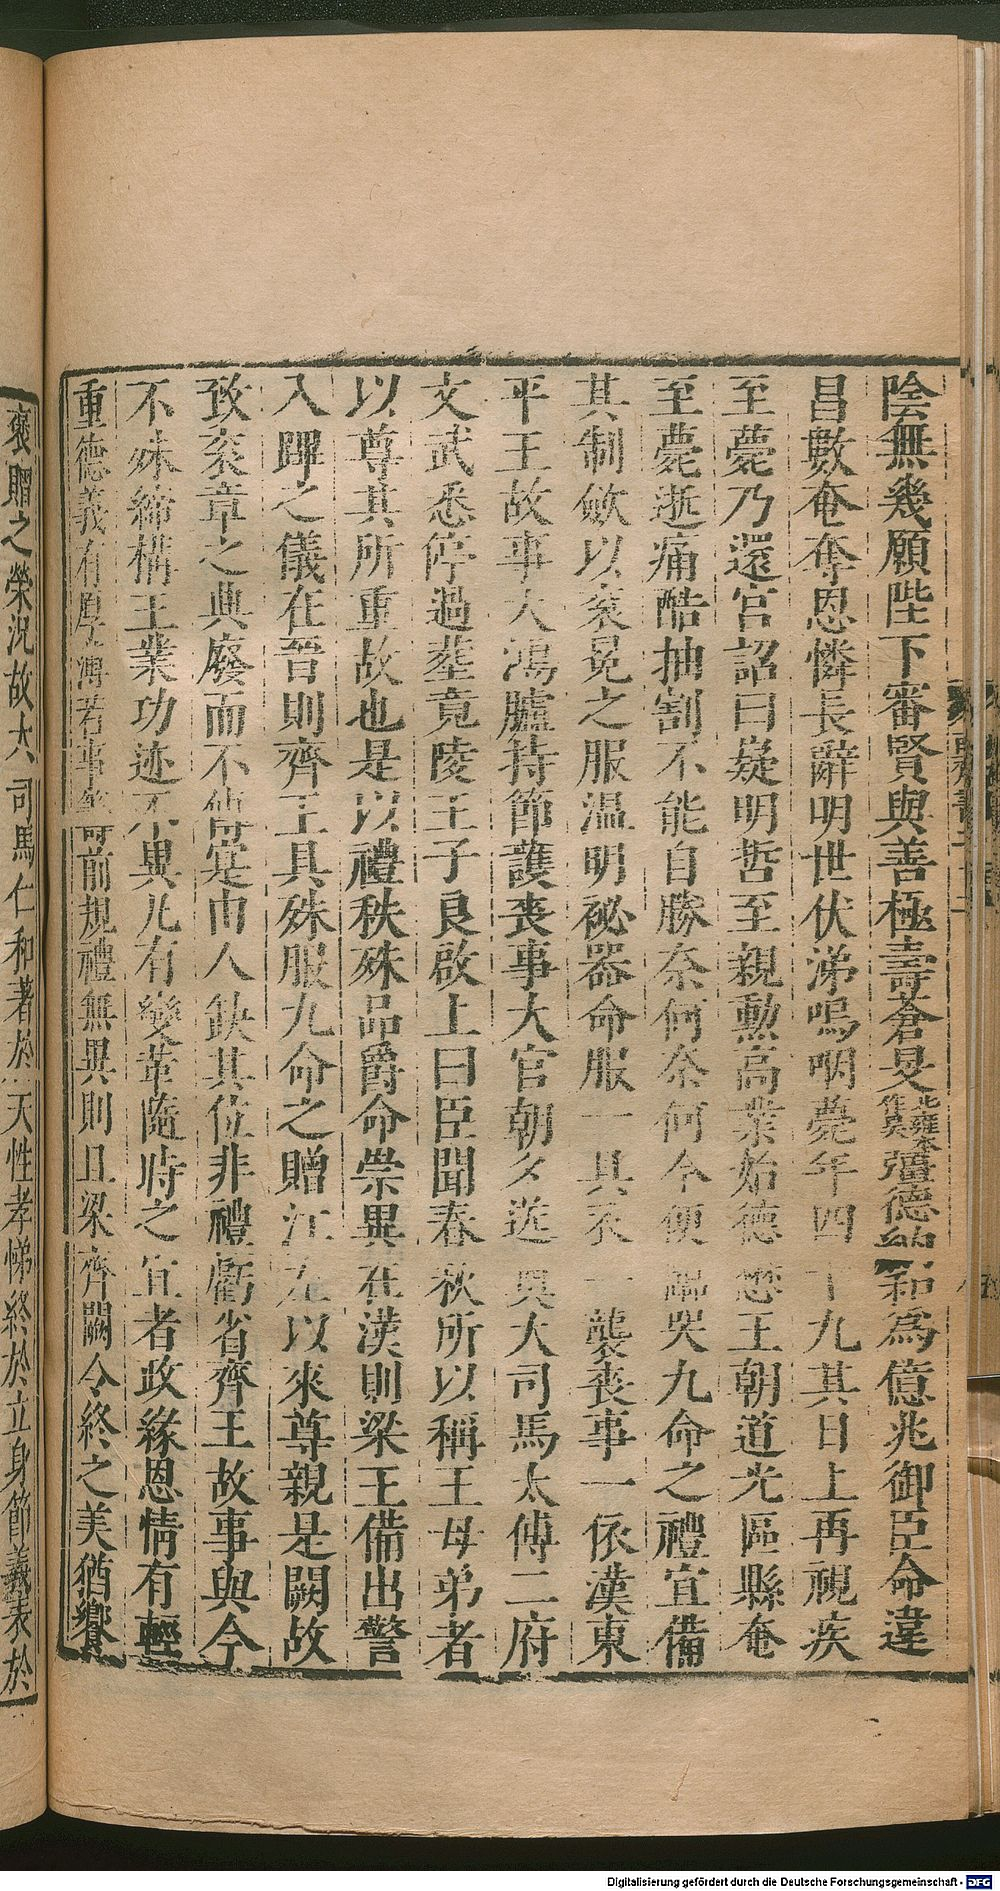 陰無幾願陛下審賢與善極壽蒼旻北雍本作昊彊德納和爲億兆御臣命違
昌數奄奪恩憐長辭明世伏涕嗚咽薨年四十九其日上再視疾
至薨乃還宮詔曰嶷明哲至親勲高業始德懋王朝道光區縣奄
至薨逝痛酷抽割不能自勝奈何奈何今便臨哭九命之禮宜備
其制斂以衮冕之服温明祕器命服一具衣一襲喪事一依漢東
平王故事大鴻臚持節護喪事大官朝夕送奠大司馬太傅二府
文武悉停過塟竟陵王子良啟上曰臣聞春秋所以稱王母弟者
以尊其所重故也是以禮秩殊品爵命崇異在漢則梁王備出警
入蹕之儀在晉則齊王具殊服九命之贈江左以來尊親是闕故
致衮章之典廢而不傳寔由人缺其位非禮虧省齊王故事與今
不殊締構王業功迹不異凡有變革隨時之宜者政緣恩情有輕
重德義有厚薄若事籌前規禮無異則且梁齊闕令終之美猶饗
褒贈之榮況故大司馬仁和著於天性孝悌終於立身節義表於
Digitalisierung gefördert durch die Deutsche Forschungsgemeinschaft - DFG